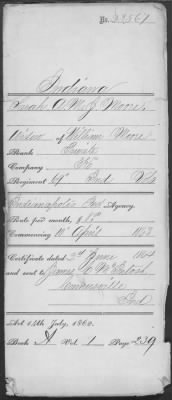 No. 22567
Indiana
Sarah A. M. J. Moore
Widow of William Moore
Rank Private
Company
Regiment Ind Vols
Indianapolis Agency.
Rate per month, $ 8
Commencing April 1863
Certificate dated June 1864
and sent to James
Ind
Act 14th July, 1862.
Book A Vol. 1 Page 239